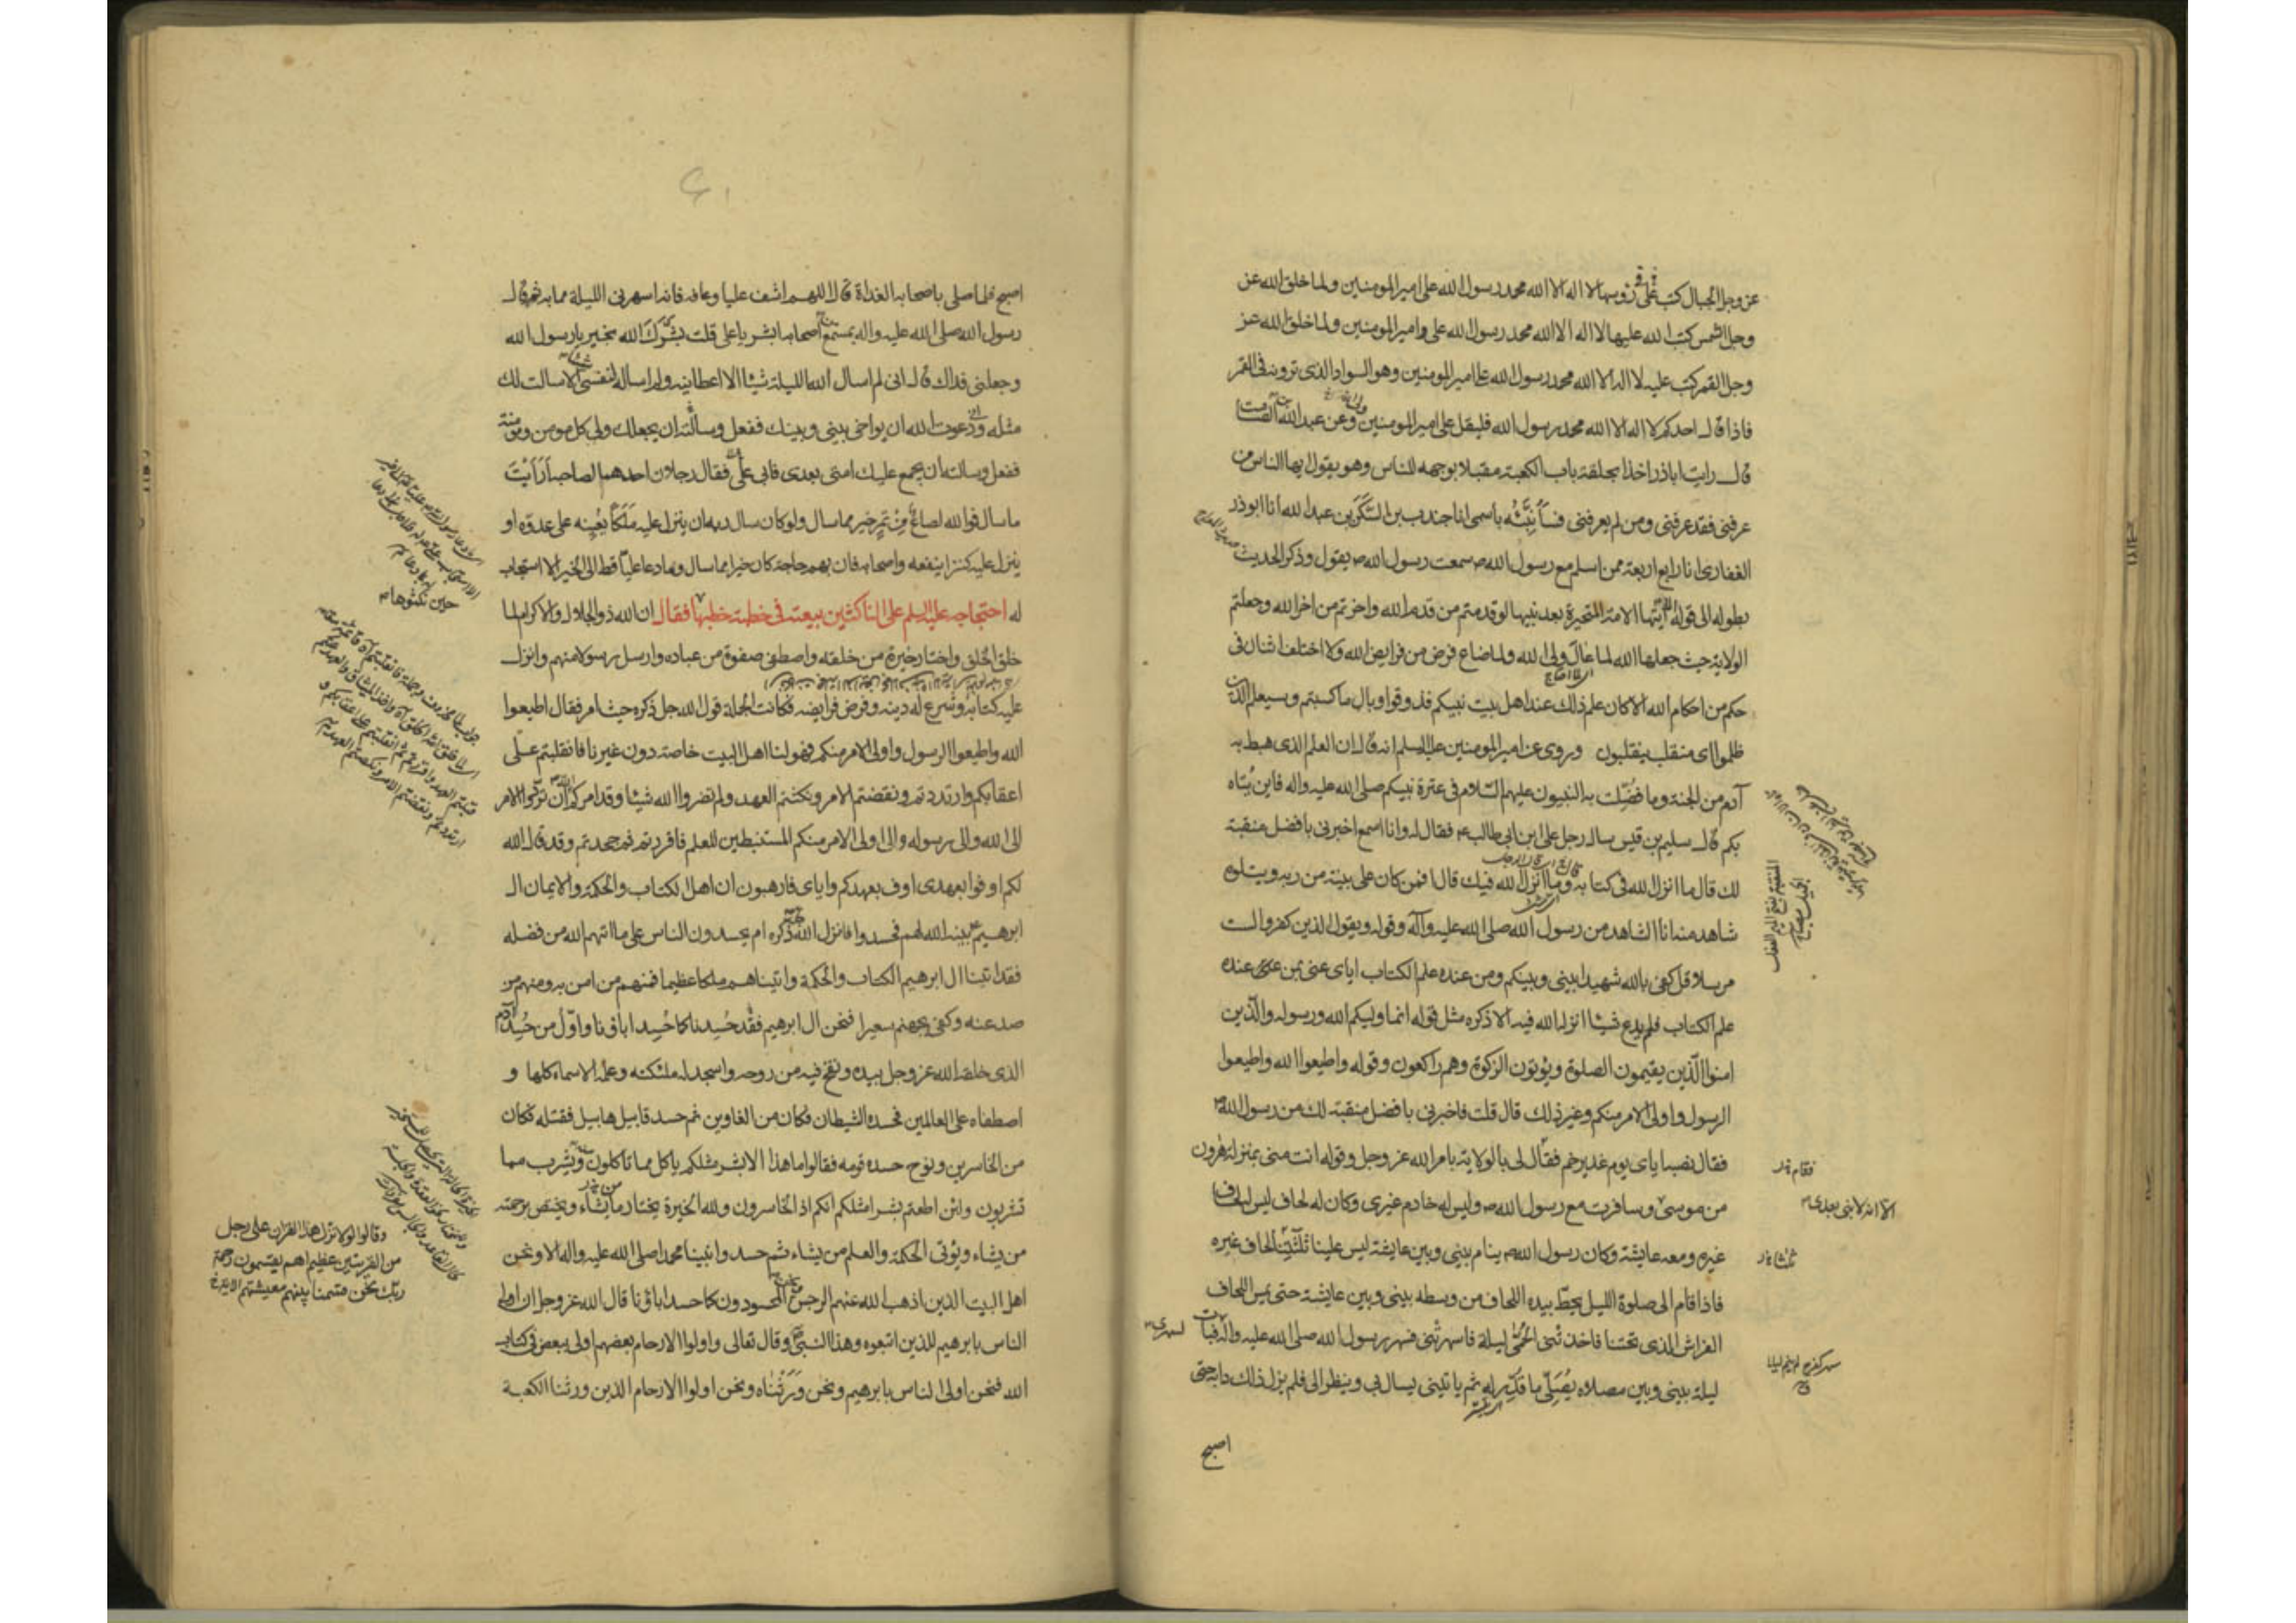 عز وجل الجبال كتب على رؤسها لا اله الا الله محمد رسول الله على امير المومنين ولما خلق الله عز
وجل الشمس كتب الله عليها لا اله الا الله محمد رسول الله على امير المومنين ولما خلق الله عز
وجل القمر كتب عليه لا اله الا الله محمد رسول الله على امير المومنين وهو السواد الذى ترونه فى القمر
فاذا قال احدكم لا اله الا الله محمد رسول الله فليقل على امير المومنين وعن عبد الله الصامت
قال رايت اباذر اخذا بحلقة باب الكعبة مقبلا بوجهه للناس وهو يقول ايها الناس من
عرفنى فقد عرفنى ومن لم يعرفنى فسأنبئه باسمى انا جندب بن السكن بن عبد الله انا ابوذر
الغفارى انا رابع اربعة ممن اسلم مع رسول الله ص سمعت رسول الله ص يقول وذكر الحديث
بطوله الى قوله ايتها الامة المتحيرة بعد نبيها لو قدمتم من قدم الله واخرتم من اخر الله وجعلتم
الولاية حيث جعلها الله لما عال ولى الله ولما ضاع فرض من فرايض الله ولا اختلف اثنان فى
حكم من احكام الله الا كان علم ذلك عند اهل بيت نبيكم فذوقوا وبال ما كسبتم وسيعلم الذين
ظلموا اى منقلب ينقلبون وروى عن امير المومنين عليه السلم انه قال ان العلم الذى هبط به
آدم من الجنة وما فضلت به النبيون عليهم السلام فى عترة نبيكم صلى الله عليه واله فاين يتاه
بكم قال سليم بن قيس سال رجل على ابن ابى طالب ع فقال له وانا اسمع اخبرنى بافضل منقبة
لك قال ما انزل الله فى كتابه قال وما انزل الله فيك قال افمن كان على بينة من ربه ويتلوه
شاهد منه انا الشاهد من رسول الله صلى الله عليه وآله وقوله ويقول الذين كفروا لست
مرسلا قل كفى بالله شهيدا بينى وبينكم ومن عنده علم الكتاب اياى عنى بمن عنده
علم الكتاب فلم يدع شيئا انزله الله فيه الا ذكره مثل قوله انما وليكم الله ورسوله والذين
امنوا الذين يقيمون الصلوة ويؤتون الزكوة وهم راكعون وقوله واطيعوا الله واطيعوا
الرسول واولى الامر منكم وغير ذلك قال قلت فاخبرنى بافضل منقبة لك من رسول الله ص
فقال نصبه اياى يوم غدير خم فقال لى بالولاية بامر الله عز وجل وقوله انت منى بمنزلة هرون
من موسى وسافرت مع رسول الله ص وليس له خادم غيرى وكان له لحاف ليس له لحاف
غيره ومعه عايشة وكان رسول الله ص ينام بينى وبين عايشة ليس علينا ثلثتنا لحاف غيره
فاذا قام الى صلوة الليل يحط بيده اللحاف من وسطه بينى وبين عايشة حتى يمس اللحاف
الفراش الذى تحتنا فاخذتنى الحمى ليلة فاسهرتنى فسهر رسول الله صلى الله عليه واله فبات
ليلة بينى وبين مصلاه يصلى ما قدر له ثم ياتينى يسال بى وينظر الى فلم يزل ذلك دابه حتى
اصبح
فقام خ
الا انه لا نبى بعدى
اصبح فلما صلى باصحابه الغداة قال اللهم اشف عليا وعافه فانه اسهرنى الليلة مما به ثم قال
رسول الله صلى الله عليه واله بمسمع اصحابه ابشر يا على قلت بشرك الله بخير يا رسول الله
وجعلنى فداك قال انى لم اسال الله الليلة شيئا الا اعطانيه ولم اساله لنفسى الا سالت لك
مثله ودعوت الله ان يواخى بينى وبينك ففعل وسالته ان يجعلك ولى كل مومن ومومنة
ففعل وسالته ان يجمع عليك امتى بعدى فابى على فقال رجلان احدهما لصاحبه ارايت
ما سال فوالله لصاع من تمر خير مما سال ولو كان سال ربه ان ينزل عليه ملكا يعينه على عدوه او
ينزل عليه كنزا ينفعه واصحابه فان بهم حاجة كان خيرا مما سال وما دعا عليا قط الى الخير الا استجاب
له احتجاجه عليه السلم على الناكثين بيعته فى خطبة خطبها فقال ان الله ذو الجلال والاكرام لما
خلق الخلق واختار خيرة من خلقه واصطفى صفوة من عباده وارسل رسولا منهم وانزل
عليه كتابه وشرع له دينه وفرض فرايضه فكانت الجملة قول الله جل ذكره حيث امر فقال اطيعوا
الله واطيعوا الرسول واولى الامر منكم فهو لنا اهل البيت خاصة دون غيرنا فانقلبتم على
اعقابكم وارتددتم ونقضتم الامر ونكثتم العهد ولم تضروا الله شيئا وقد امركم الله ان تردوا الامر
الى الله والى رسوله والى اولى الامر منكم المستنبطين للعلم فاقررتم ثم جحدتم وقد قال الله
لكم اوفوا بعهدى اوف بعهدكم واياى فارهبون ان اهل الكتاب والحكمة والايمان ال
ابرهيم بينه الله لهم فحسدوا فانزل الله ذكره ام يحسدون الناس على ما اتهم الله من فضله
فقد اتينا ال ابرهيم الكتاب والحكمة واتيناهم ملكا عظيما فمنهم من امن به ومنهم من
صد عنه وكفى بجهنم سعيرا فنحن ال ابرهيم فقد حسدنا كما حسد اباؤنا واول من حسد آدم
الذى خلقه الله عز وجل بيده ونفخ فيه من روحه واسجد له ملئكته وعلمه الاسماء كلها و
اصطفاه على العالمين فحسده الشيطان فكان من الغاوين ثم حسد قابيل هابيل فقتله فكان
من الخاسرين ونوح حسده قومه فقالوا ما هذا الا بشر مثلكم ياكل مما تاكلون منه ويشرب مما
تشربون ولئن اطعتم بشرا مثلكم انكم اذا لخاسرون ولله الخيرة يختار من يشاء ويختص برحمته
من يشاء ويؤتى الحكمة والعلم من يشاء ثم حسدوا نبينا محمدا صلى الله عليه واله الا ونحن
اهل البيت الذين اذهب الله عنهم الرجس ونحن المحسودون كما حسد اباؤنا قال الله عز وجل ان اولى
الناس بابرهيم للذين اتبعوه وهذا النبى وقال تعالى واولوا الارحام بعضهم اولى ببعض فى كتاب
الله فنحن اولى الناس بابرهيم ونحن ورثناه ونحن اولوا الارحام الذين ورثنا الكعبة
وقالوا لولا نزل هذا القران على رجل
من القريتين عظيم اهم يقسمون رحمة
ربك نحن قسمنا بينهم معيشتهم الاية